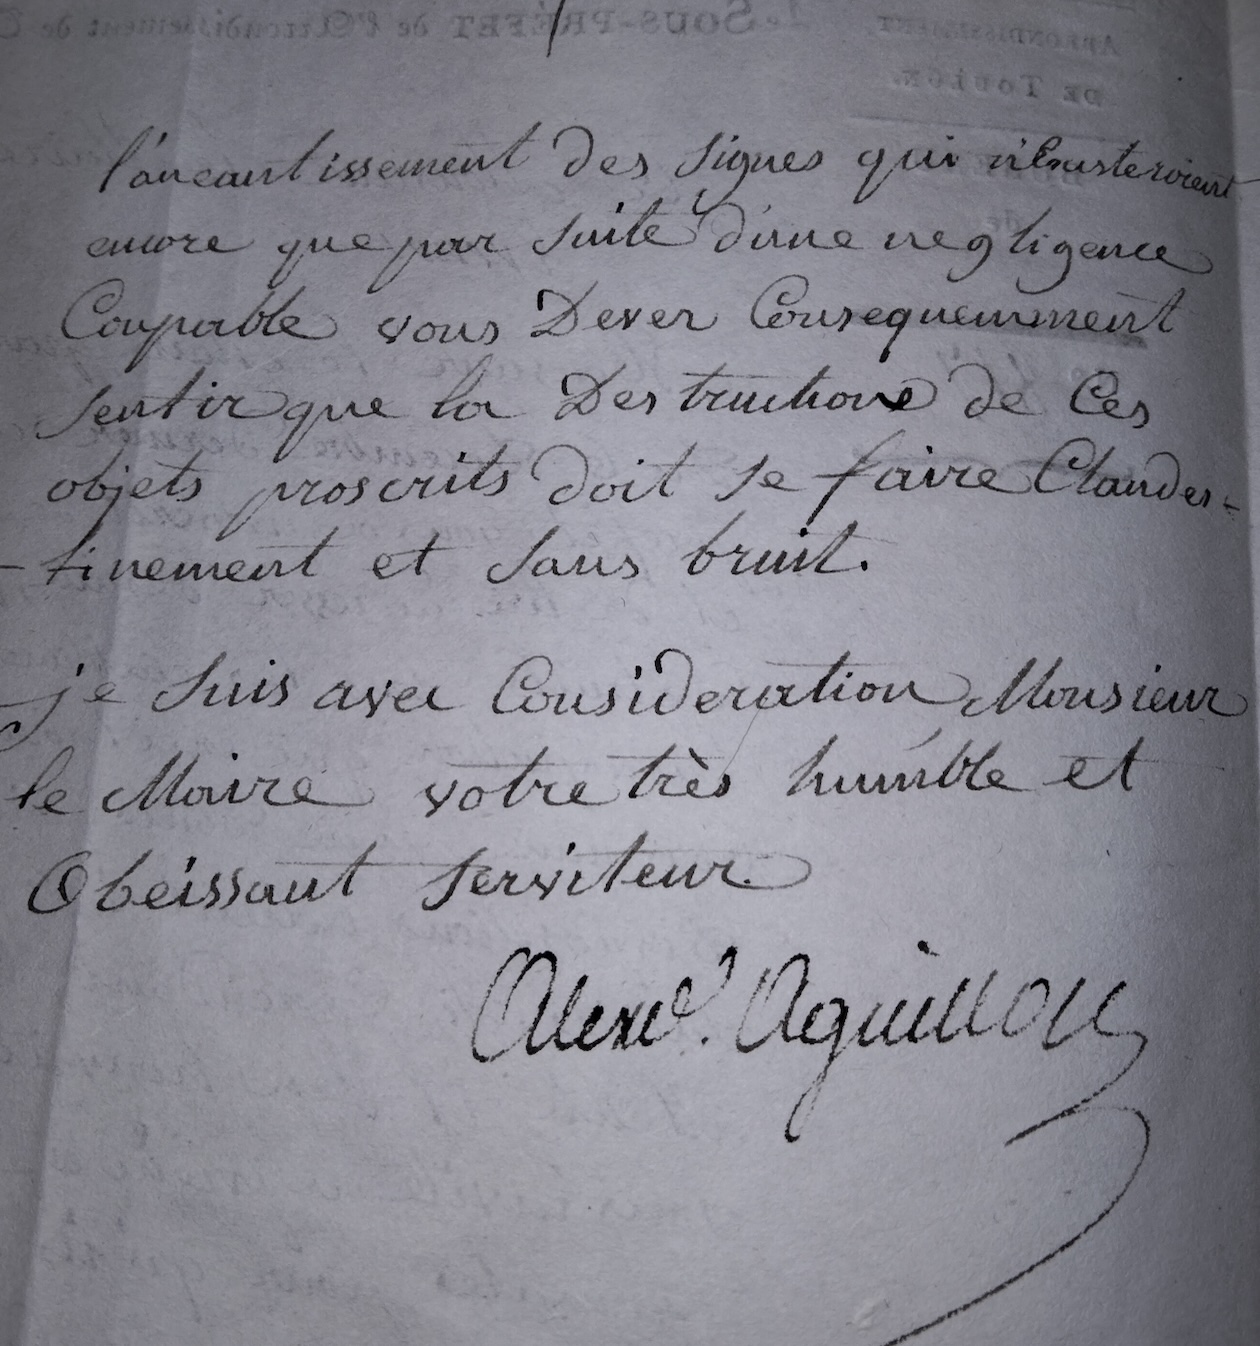 l'aneantissement des signes qui n'Existeroient
encore que par suite d'une negligence
Coupable vous Dever Consequemment
sentir que la Destruction de Ces
objets proscrits doit se faire Clandes-
-tinement et sans bruit.
je suis avec Consideration Monsieur
le Maire votre très humble et
Obeissant serviteur.
Alexdre. Aguillon